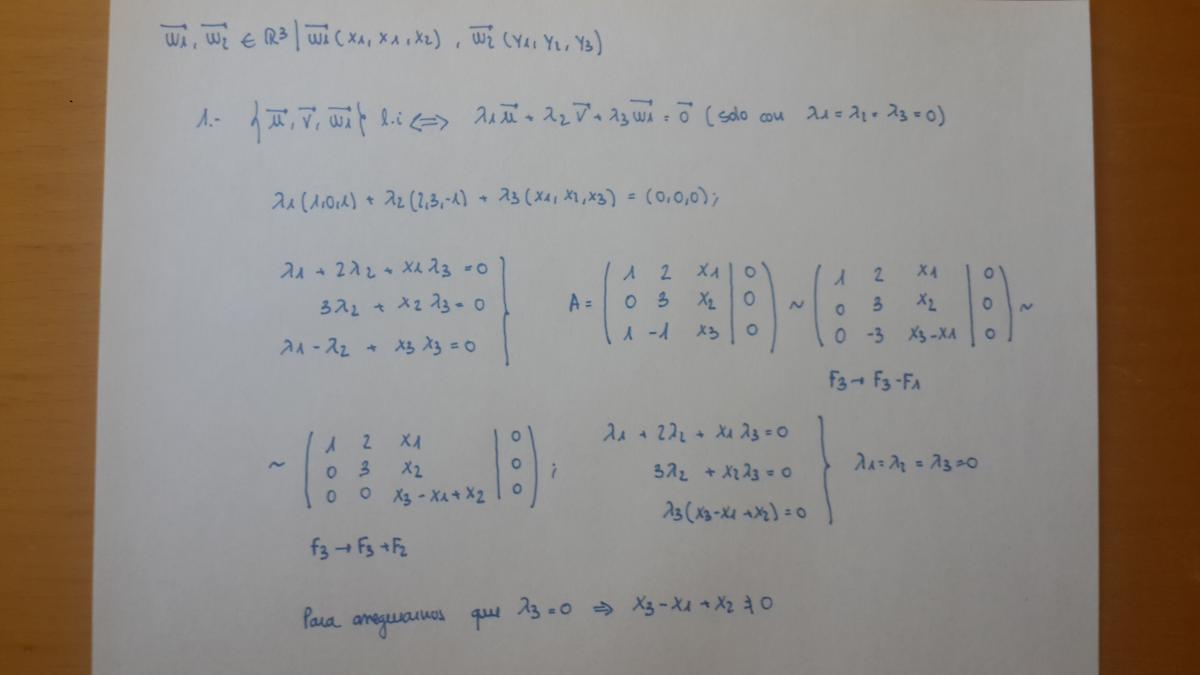 w₁, w₂ ∈ ℝ³ | w₁ (x₁, x₁, x₂) , w₂ (y₁, y₂, y₃)
1.- {u, v, w₁} l.i ⟺ λ₁u + λ₂v + λ₃w₁ = 0 (solo con λ₁ = λ₂ = λ₃ = 0)
λ₁(1,0,1) + λ₂(2,3,-1) + λ₃(x₁, x₂, x₃) = (0,0,0);
λ₁ + 2λ₂ + x₁λ₃ = 0
3λ₂ + x₂λ₃ = 0
λ₁ - λ₂ + x₃x₃ = 0
A = ( 1 2 x₁ | 0 ) ~ ( 1 2 x₁ | 0 ) ~
0 3 x₂ | 0 0 3 x₂ | 0
1 -1 x₃ | 0 0 -3 x₃-x₁ | 0
F₃ → F₃-F₁
~ ( 1 2 x₁ | 0 ) ;
0 3 x₂ | 0
0 0 x₃-x₁+x₂ | 0
F₃ → F₃+F₂
λ₁ + 2λ₂ + x₁λ₃ = 0
3λ₂ + x₂λ₃ = 0
λ₃(x₃-x₁+x₂) = 0
λ₁ = λ₂ = λ₃ = 0
Para asegurarnos que λ₃ = 0 ⇒ x₃ - x₁ + x₂ ≠ 0